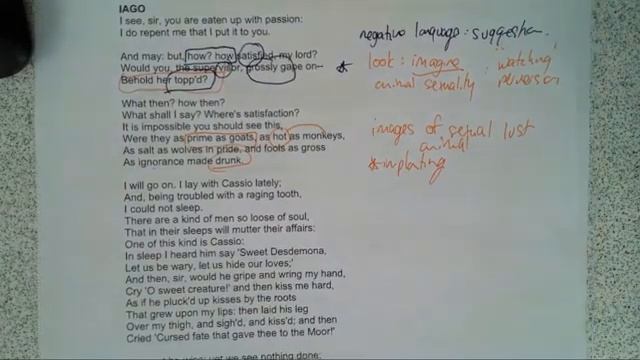 IAGO
I see, sir, you are eaten up with passion:
I do repent me that I put it to you.
And may: but, how? how satisfied, my lord?
Would you, the supervisor, grossly gape on--
Behold her topp'd?
What then? how then?
What shall I say? Where's satisfaction?
It is impossible you should see this,
Were they as prime as goats, as hot as monkeys,
As salt as wolves in pride, and fools as gross
As ignorance made drunk.
I will go on. I lay with Cassio lately;
And, being troubled with a raging tooth,
I could not sleep.
There are a kind of men so loose of soul,
That in their sleeps will mutter their affairs:
One of this kind is Cassio:
In sleep I heard him say 'Sweet Desdemona,
Let us be wary, let us hide our loves;'
And then, sir, would he gripe and wring my hand,
Cry 'O sweet creature!' and then kiss me hard,
As if he pluck'd up kisses by the roots
That grew upon my lips: then laid his leg
Over my thigh, and sigh'd, and kiss'd; and then
Cried 'Cursed fate that gave thee to the Moor!'
yet we see nothing done;
negative language: suggestion.
look: imagine : 'watching'
animal sexuality perversion
images of sexual lust
animal
* implanting